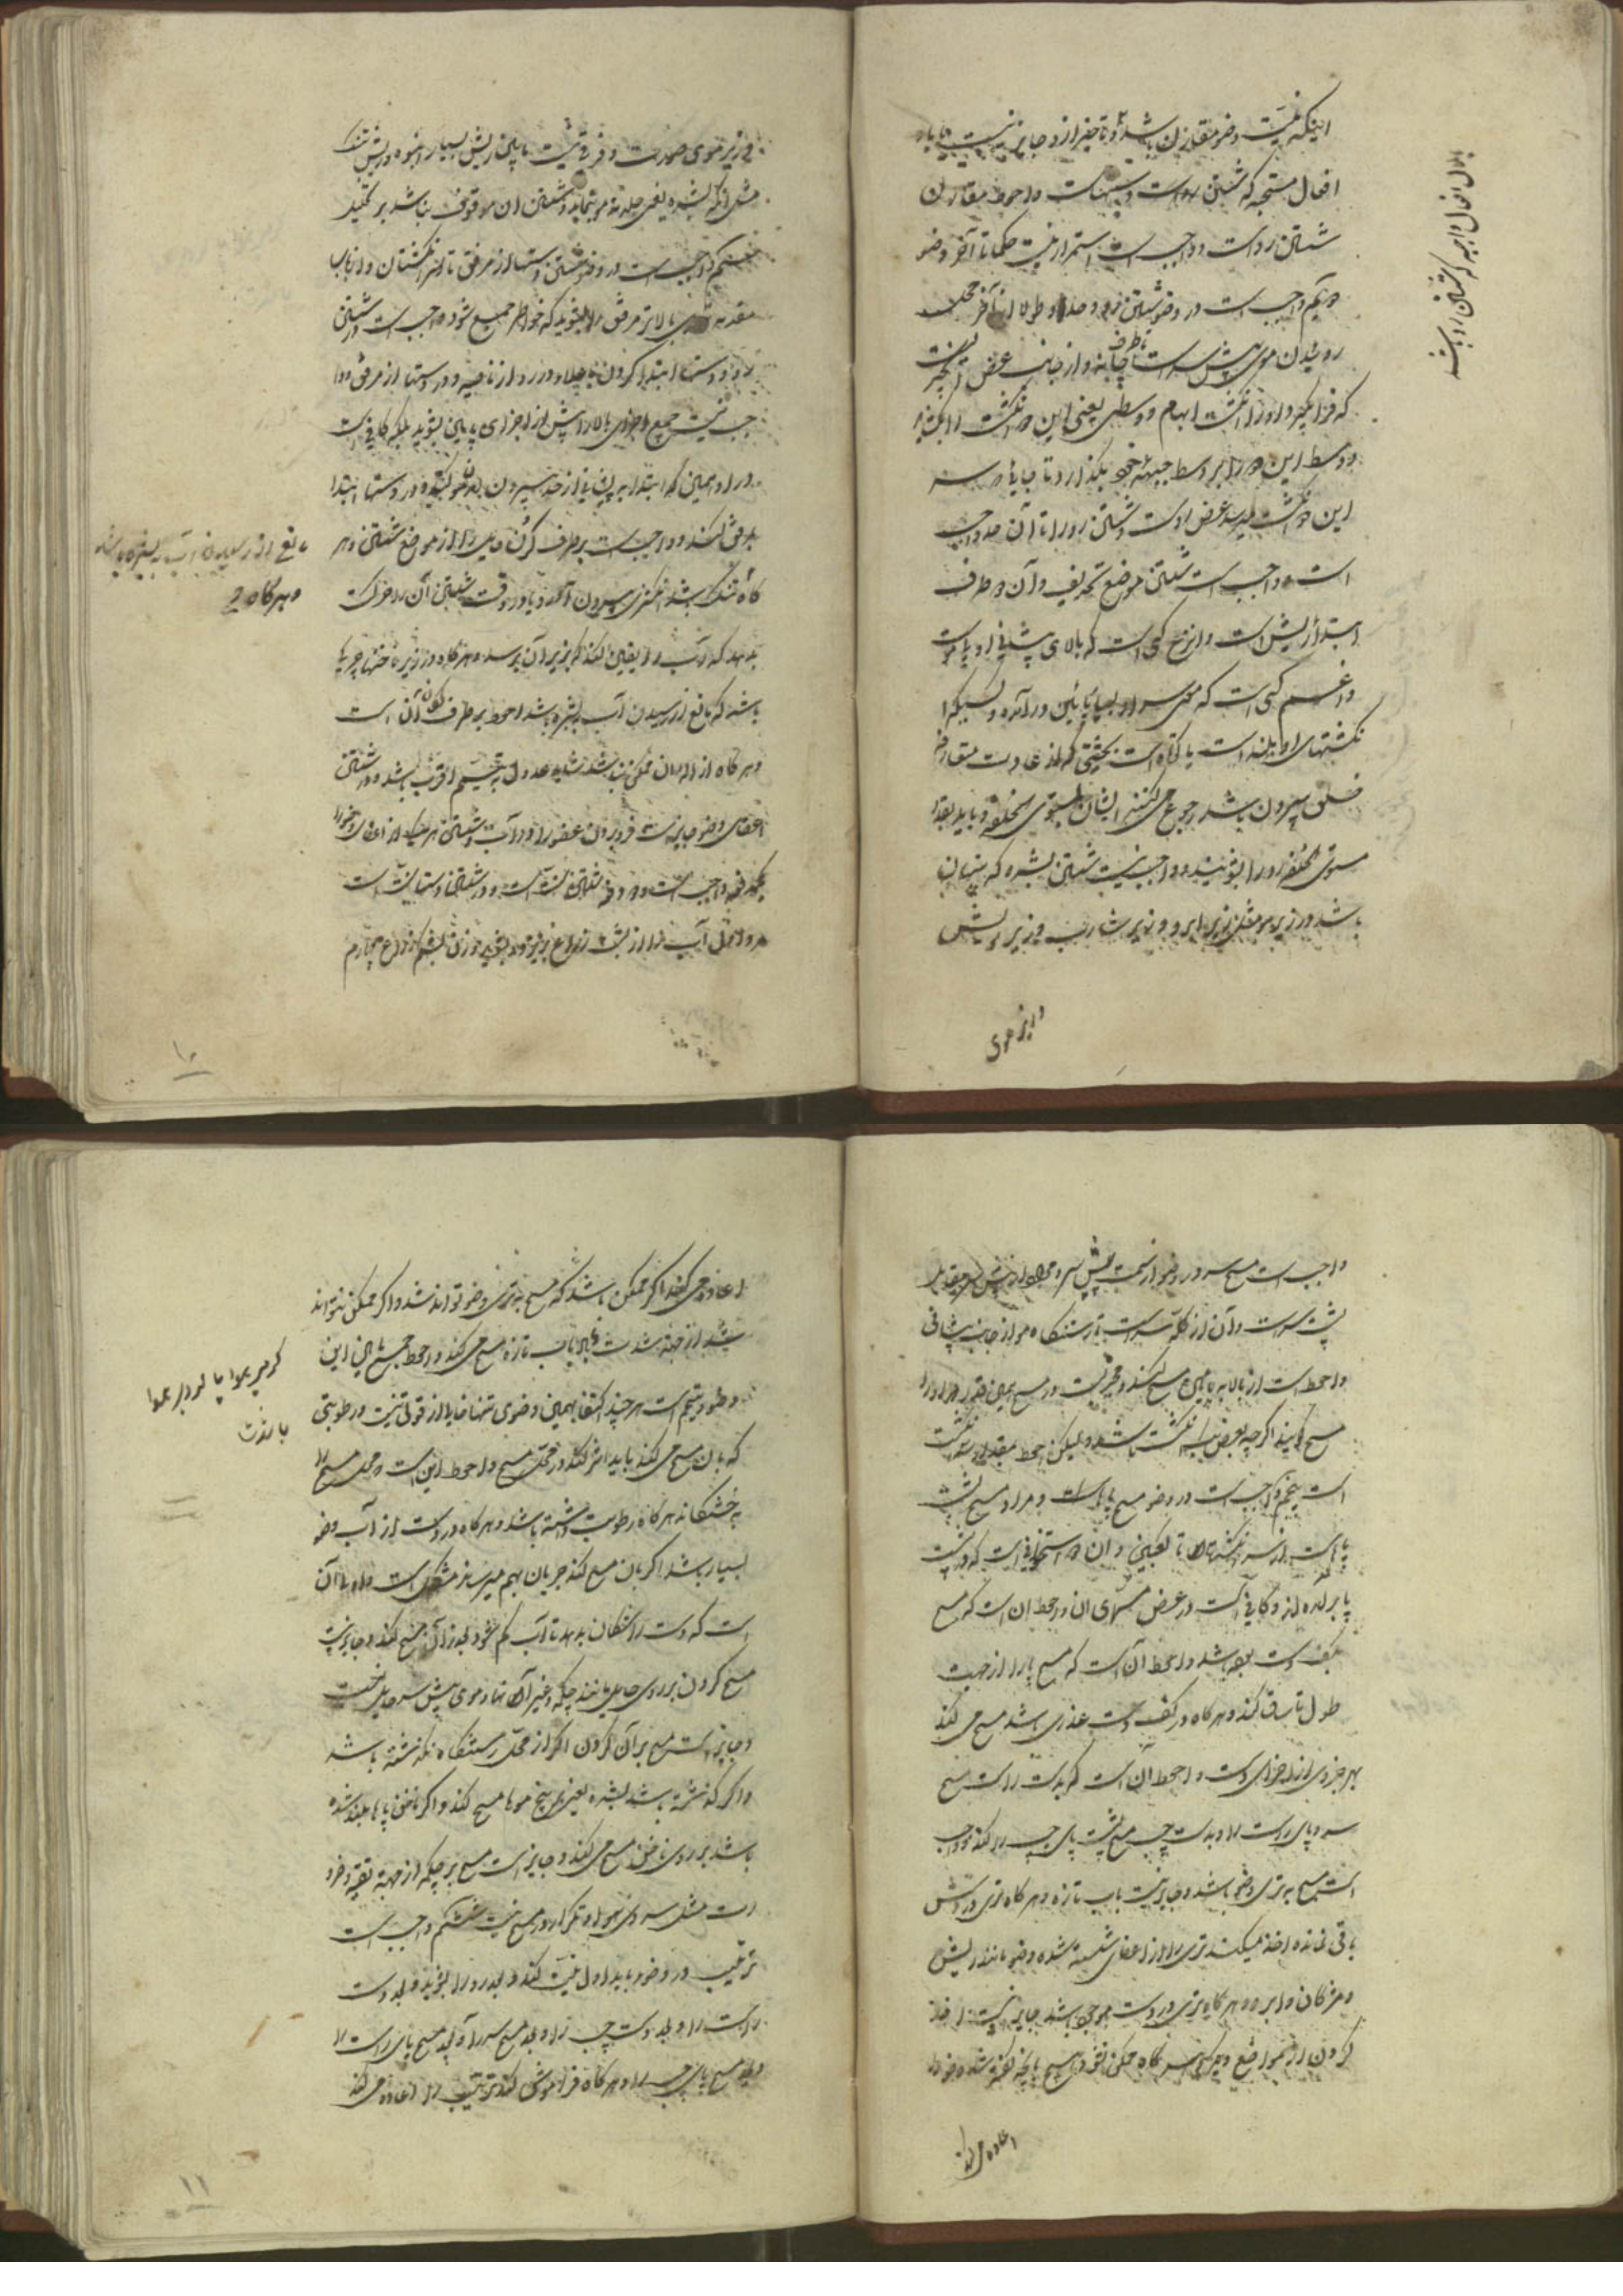 اینکه نیت وضو مقارن باشد و تاخیر از او جایز نیست یا باول
افعال مستحبه که شستن دست و احوط مقارن
شستن رو است و واجب است استمرار نیت حکما تا آخر وضو
دویم واجب است در وضو شستن رو و حد او طولا از آخر محل
روئیدن موی پیش سر است تا طرف چانه و از جانب عرض
که فرا گیرد او را انگشت ابهام و وسطی یعنی این دو انگشت را
و وسط این دو را بر وسط جبهه خود بگذارد تا جائی که
این دو انگشت میرسد عرض او است و شستن رو را تا آن حد واجب
است و واجب است شستن موضع تحدیف و آن دو طرف
ابتداء ریش است و انزع کسی است که بالای پیشانی او موست
و اغم کسی است که موی سر او بسیار پائین در آمده و کسیکه
انگشتهای او بلند است یا کوتاه است بحیثیتی که از عادت متعارف
خلق بیرون باشد رجوع می کنند ایشان بمستوی الخلقه و باید بقدر
مستوی الخلقه رو را بشویند و واجب نیست شستن بشره که پنهان
باشد در زیر مو مثل زیر ابرو و زیر شارب و زیر ریش
باول افعال واجبه که شستن رو باشد
و زیر موی
و زیر موی صورت و فرقی نیست میان ریش بسیار انبوه و ریش تنک
مثل آنکه بشره یعنی جلد ته مو نماید و شستن ان موقوف باشد بر تخلیل
سیم واجب است در وضو شستن دستها از مرفق تا سر انگشتان و از باب
مقدمه قدری بالاتر مرفق را بشوید که خواطر جمع شود و واجب است در شستن
رو و دستها ابتدا کردن باعلا و در رو از ناصیه و در دستها از مرفق و وا
جب نیست جمیع اجزای بالا را پیش از اجزای پایین بشوید بلکه کافی است
در رو همین که ابتدا به پیشانی از حد بیرون و در دستها ابتدا
بمرفق کند و واجب است بر طرف کردن حایل را از مواضع شستن و هر
گاه تنک باشد انگشتر بیرون آورد و یا در وقت شستن آن را حرکت
بدهد که آب را یقین کند که بزیر آن برسد و هر گاه در زیر ناخنها چرک
باشد که مانع از رسیدن آب بشره باشد احوط بر طرف کردن آن است
و هر گاه ازاله ان ممکن نباشد شاید عدول به تیمم اقرب باشد و در شستن
اعضای وضو جایز است فرو بردن عضو را در آب و شستن هر یک از اعضای وضو را
یک دفعه واجب است و دو دفعه شستن سنت است و در شستن دستها سنت است
مرد اول آب را از پشت ذراع بریزد و بشوید و زن بشکم ذراع چهارم
مانع از رسیدن آب به بشره باشد
و هر گاه
۱۰
واجب است مسح سر در وضو از سمت پیش سر و مراد از پیش سر مقابل
پشت سر است و آن از کله سر است تا رستنگاه مو از جانب پیشانی
و احوط است از بالا به پایین مسح کند و مجزیست در مسح همین قدر که او را
مسح گویند اگر چه بعرض یک انگشت باشد و لیکن احوط مقدار سه انگشت
است پنجم واجب است در وضو مسح پاها و مراد مسح پشت
پا است از سر انگشتها تا کعبین و ان دو استخوانی است که در پشت
پا بر آمده اند و کافی است در عرض مسمای ان و احوط ان است که مسح
بکف دست بوده باشد و احوط آن است که مسح پا را از جهت
طول تا ساق کند و هر گاه در کف دست عذری باشد مسح می کند
بهر جزوی از اجزای دست و احوط آن است که بدست راست مسح
سر و پای راست را و بدست چپ مسح پشت پای چپ را کند و واجب
است مسح به تری وضو باشد و جایز نیست بآب تازه و هر گاه تری در دستش
باقی نمانده اخذ میکند تری را از اعضای شسته شده وضو مانند ریش
و مژگان و ابرو و هر گاه تری در دست موجود باشد جایز نیست اخذ
کردن از مواضع دیگر و هر گاه ممکن نشود مسح بآنچه گفته شد وضو را
اعاده می کند
اعاده می کند اگر ممکن باشد که مسح به تری وضو تواند شد و اگر ممکن نتواند
شد از جهة شدت بآب تازه مسح می کند و احوط جمع میان این
وضو و تیمم است هر چند اکتفا بهمین وضوی تنها خالی از قوتی نیست و رطوبتی
که بان مسح می کند باید اثر کند در محل مسح و احوط این است که محل مسح را
به خشکاند هر گاه رطوبت داشته باشد و هر گاه در دست از آب وضو
بسیار باشد اگر بان مسح کند جریان بهم میرساند مشکل است و اولی آن
است که دست را تکان بدهد تا آب کم شود بعد از آن مسح کند و جایز نیست
مسح کردن بر روی حایل مانند چکمه و غیر آن اما موی پیش سر حایل نیست
و جایز است مسح بر آن کردن اگر از محل رستنگاه نگذشته باشد
و اگر گذشته باشد بشره یعنی بر بیخ موها مسح کند و اگر ناخن پاها بلند شده
باشد بر روی ناخن مسح می کند و جایز است مسح بر چکمه از جهة تقیه و ضرو
رت مثل سردی هوا و تکرار در مسح نیست ششم واجب است
ترتیب در وضو باید اول نیت کند و بعد رو را بشوید و بعد دست
راست را و بعد دست چپ را و بعد مسح سر را و بعد مسح پای راست را
و بعد مسح پای چپ را و هر گاه فراموش کند ترتیب را اعاده می کند
گرمی هوا یا
۱۱